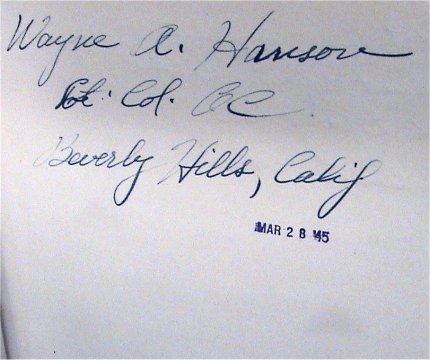 Wayne A. Hanson
Lt. Col. DC
Beverly Hills, Calif
MAR 28 '45